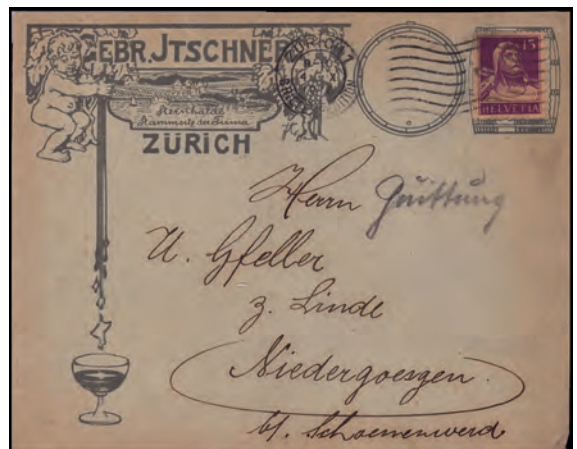 GEBR. JTSCHNER
Steinhalde
Stammsitz der Firma
ZÜRICH
ZÜRICH 1
15
HELVETIA
Herrn Quittung
U. Gfeller
z. Linde
Niedergoesgen.
b/. Schoenenwerd